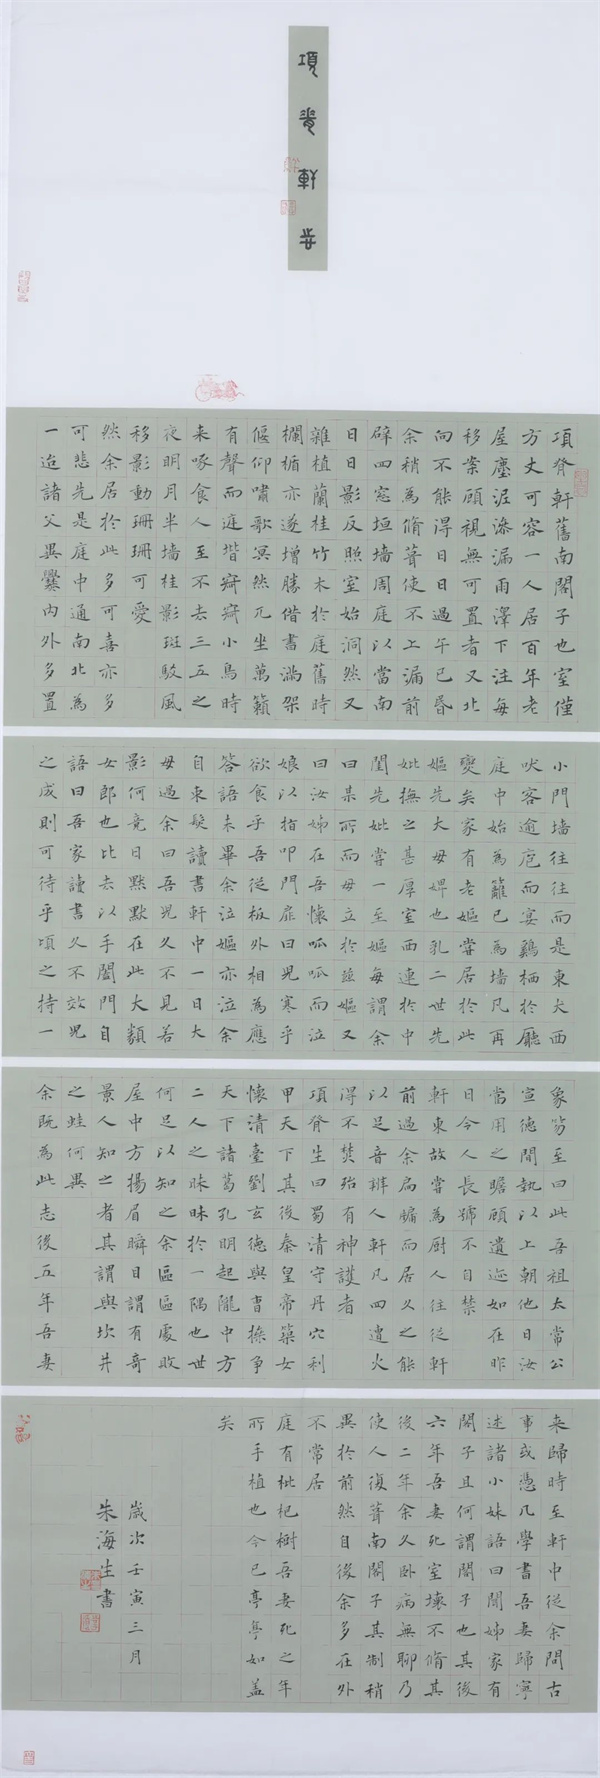 項脊軒志
項脊軒舊南閣子也室僅
方丈可容一人居百年老
屋塵泥滲漏雨澤下注每
移案顧視無可置者又北
向不能得日日過午已昏
余稍為脩葺使不上漏前
辟四窓垣墻周庭以當南
日日影反照室始洞然又
雜植蘭桂竹木於庭舊時
欄楯亦遂增勝借書滿架
偃仰嘯歌冥然兀坐萬籟
有聲而庭堦寂寂小鳥時
来啄食人至不去三五之
夜明月半墙桂影斑駁風
移影動珊珊可愛
然余居於此多可喜亦多
可悲先是庭中通南北為
一迨諸父異爨内外多置
小門墻往往而是東犬西
吠客逾庖而宴鷄栖於廳
庭中始為籬已為墻凡再
變矣家有老嫗嘗居於此
嫗先大母婢也乳二世先
妣撫之甚厚室西連於中
閨先妣嘗一至嫗每謂余
曰某所而母立於茲嫗又
曰汝姊在吾懷呱呱而泣
娘以指叩門扉曰兒寒乎
欲食乎吾從板外相為應
答語未畢余泣嫗亦泣余
自束髮讀書軒中一日大
母過余曰吾兒久不見若
影何竟日默默在此大類
女郎也比去以手闔門自
語曰吾家讀書久不效兒
之成則可待乎頃之持一
象笏至曰此吾祖太常公
宣德間執以上朝他日汝
當用之瞻顧遺迹如在昨
日令人長號不自禁
軒東故嘗為厨人往從軒
前過余扃牖而居久之能
以足音辨人軒凡四遭火
得不焚殆有神護者
項脊生曰蜀清守丹穴利
甲天下其後秦皇帝築女
懷清臺劉玄德與曹操爭
天下諸葛孔明起隴中方
二人之昧昧於一隅也世
何足以知之余區區處敗
屋中方揚眉瞬目謂有奇
景人知之者其謂與坎井
之蛙何異
余既為此志後五年吾妻
来歸時至軒中從余問古
事或憑几學書吾妻歸寧
述諸小妹語曰聞姊家有
閣子且何謂閣子也其後
六年吾妻死室壞不脩其
後二年余久卧病無聊乃
使人復葺南閣子其制稍
異於前然自後余多在外
不常居
庭有枇杷樹吾妻死之年
所手植也今已亭亭如蓋
矣
歲次壬寅三月
朱海生書